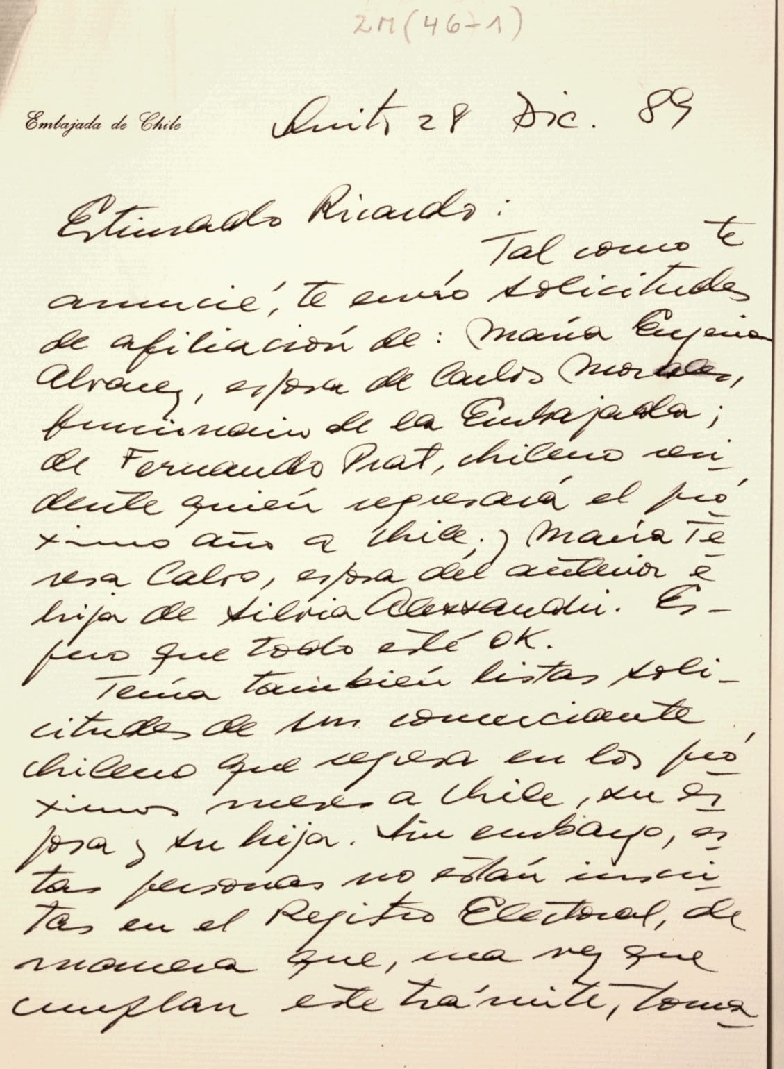 2M(46-1)
Embajada de Chile
Quito 28 Dic. 89
Estimado Ricardo:
Tal como te
anuncié, te envío solicitudes
de afiliación de: María Eugenia
Alvarez, esposa de Carlos Morales,
funcionario de la Embajada;
de Fernando Prat, chileno resi-
dente quién regresará el pró-
ximo año a Chile. y María Te-
resa Calvo, esposa del anterior e
hija de Silvia Alessandri. Es-
pero que todo esté OK.
Tenía también listas soli-
citudes de un comerciante
chileno que regresa en los pró-
ximos meses a Chile, su es-
posa y su hija. Sin embargo, es-
tas personas no están inscri-
tas en el Registro Electoral, de
manera que, una vez que
cumplan este trámite, toma-